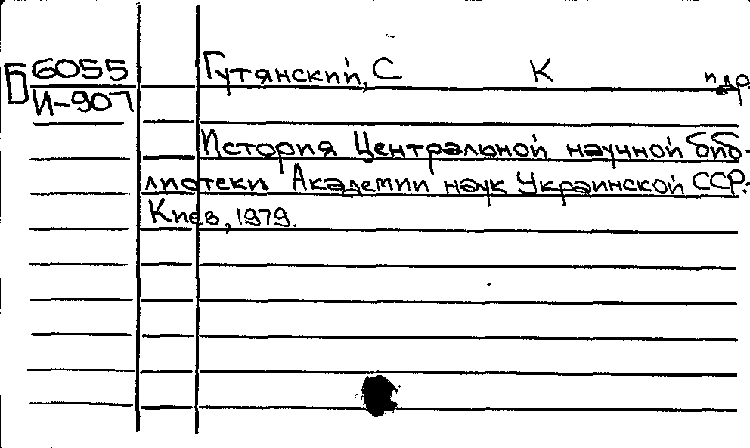 Б 6055 Гутянский, С К и др.
И-907
История Центральной научной биб-
лиотеки Академии наук Украинской ССР.
Киев, 1979.